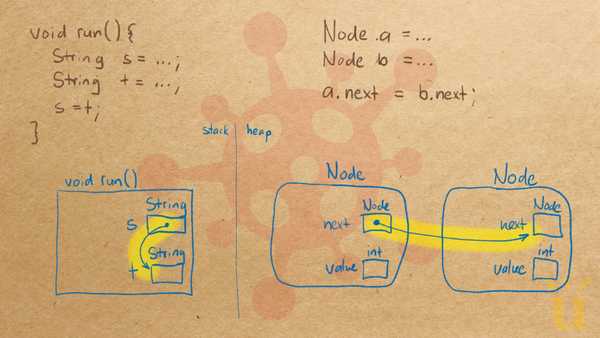 void run(){
String s = ...;
String t = ...;
s = t;
}
Node a = ...
Node b = ...
a.next = b.next;
stack | heap
void run()
String
s
String
t
Node
Node
next
int
value
Node
Node
next
int
value
ü